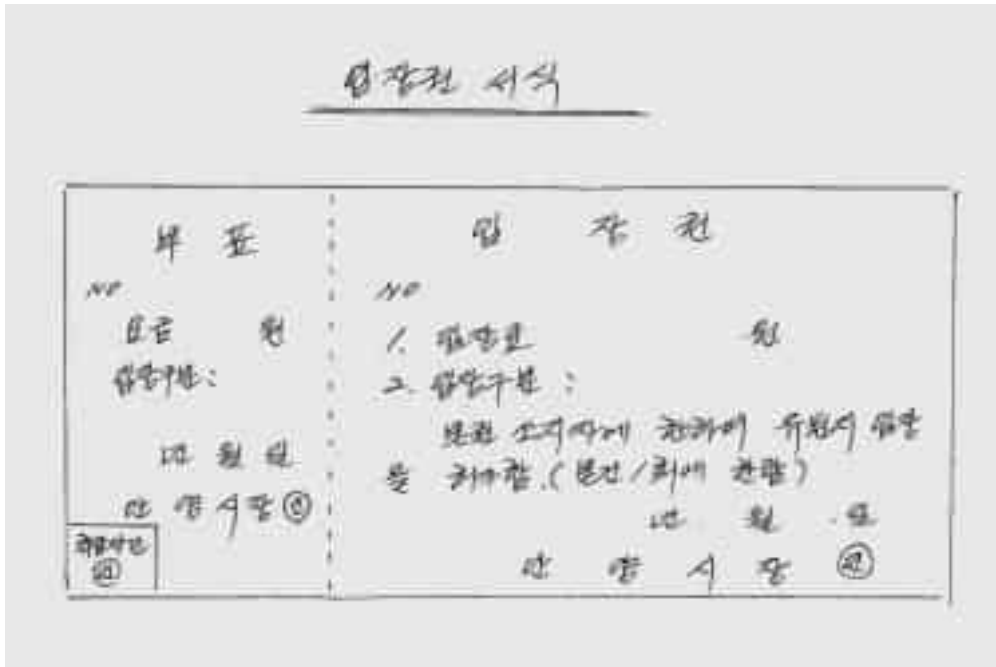 입장권 서식
부 표
NO
요금 원
입장구분:
년 월 일
안 양 시 장 ㊞
취급자인
㊞
입 장 권
NO
1. 입장료 원
2. 입장구분 :
본권 소지자에 한하여 유원지 입장
을 허가함.(본권 1회에 한함)
년 월 일
안 양 시 장 ㊞